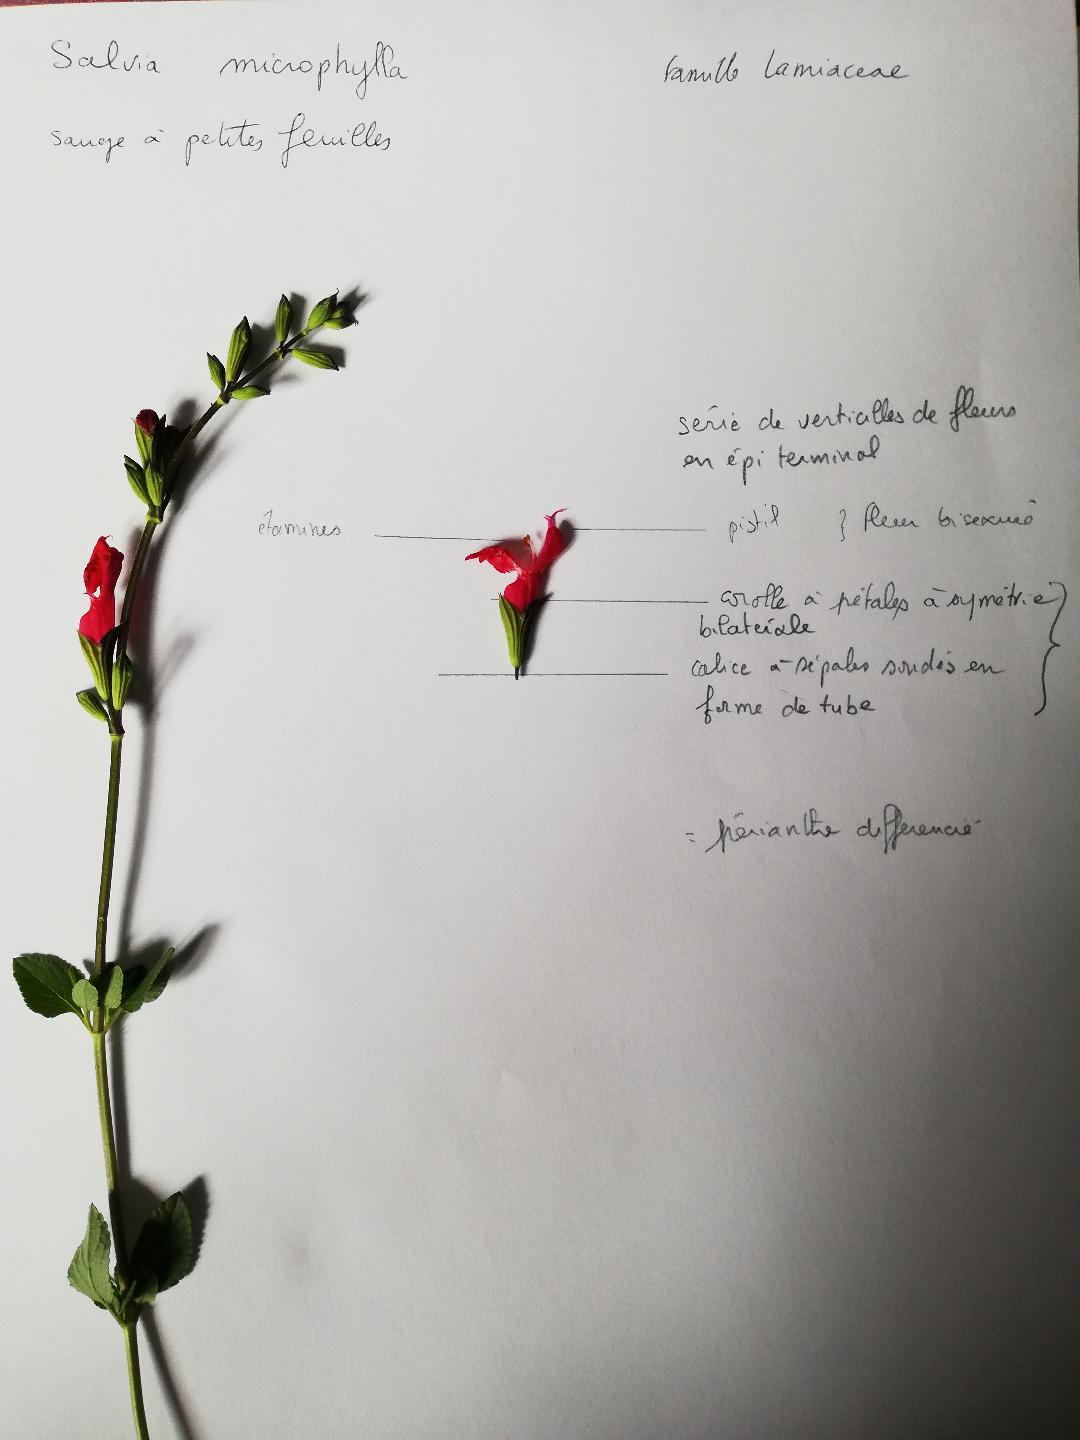 Salvia microphylla
famille Lamiaceae
sauge à petites feuilles
série de verticilles de fleurs
en épi terminal
étamines
pistil } fleur bisexuée
corolle à pétales à symétrie
bilatérale
calice à sépales soudés en
forme de tube
= périanthe différencié